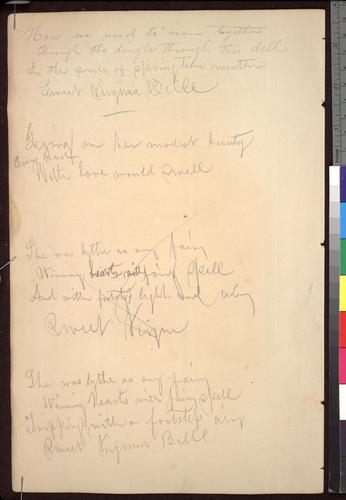 How we used to roam together
Through the dingle through the dell
In the smiles of spring time weather
Sweet Virginia Belle
Gazing on her modest beauty
Every heart
With love would swell
She was lythe as any fairy
Winning hearts with fairy spell
And with footstep light and airy
Sweet Virgin
She was lythe as any fairy
Winning hearts with fairy spell
Tripping with a footstep airy
Sweet Virginia Belle